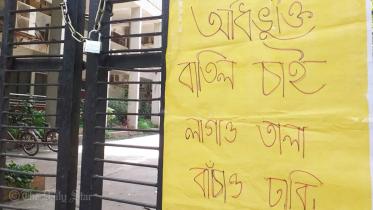 অধিভুক্তি
বাতিল চাই
লাগাও তালা
বাঁচাও ঢাবি,
The Daily Star